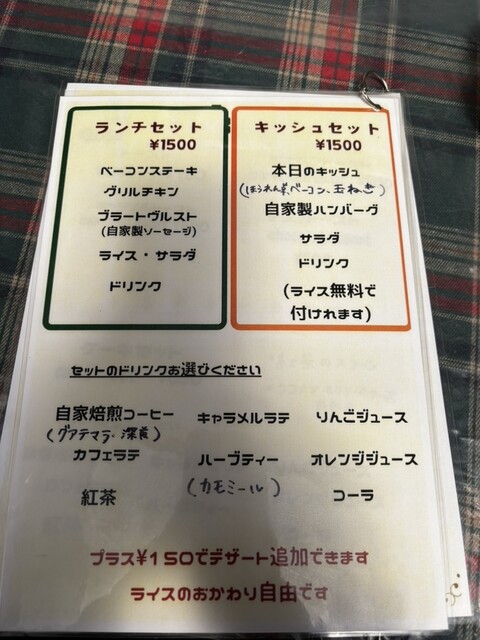 ランチセット
¥1500
ベーコンステーキ
グリルチキン
ブラートヴルスト
(自家製ソーセージ)
ライス・サラダ
ドリンク
キッシュセット
¥1500
本日のキッシュ
(ほうれん草、ベーコン、玉ねぎ)
自家製ハンバーグ
サラダ
ドリンク
(ライス無料で
付けれます)
セットのドリンクお選びください
自家焙煎コーヒー キャラメルラテ りんごジュース
(グアテマラ・深煎)
カフェラテ ハーブティー オレンジジュース
(カモミール)
紅茶 コーラ
プラス¥150でデザート追加できます
ライスのおかわり自由です